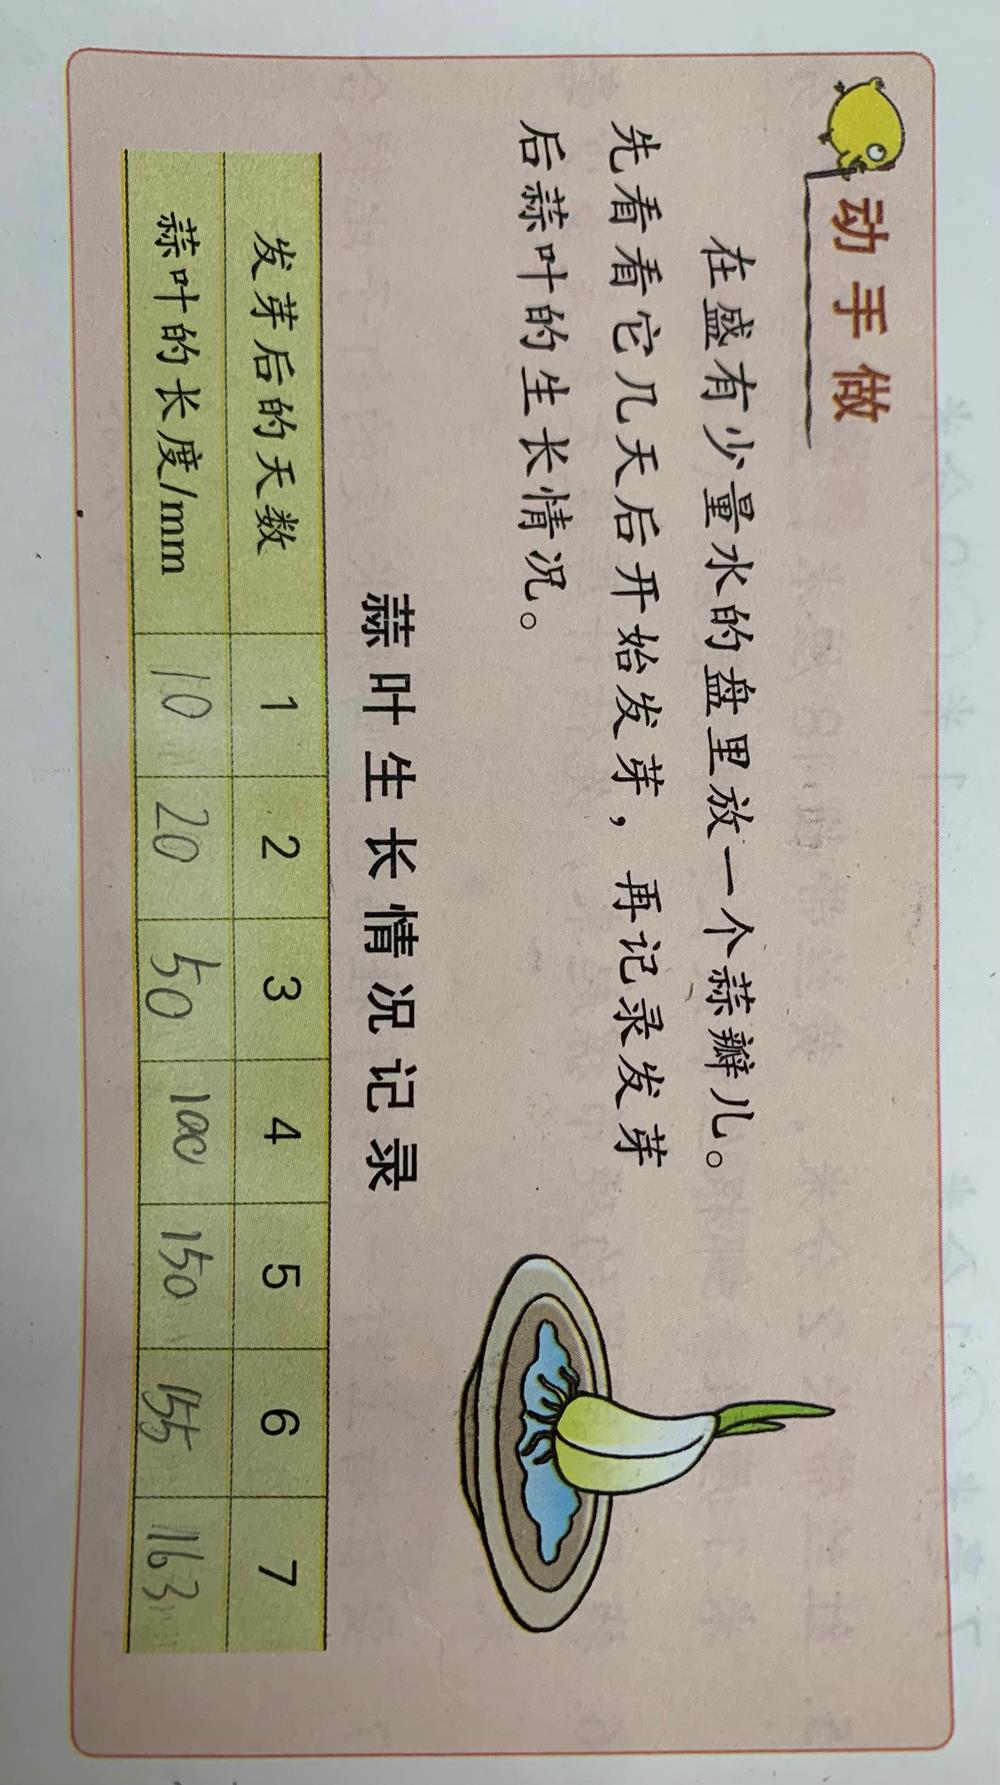 动手做
在盛有少量水的盘里放一个蒜瓣儿。
先看看它几天后开始发芽，再记录发芽
后蒜叶的生长情况。
蒜叶生长情况记录
发芽后的天数 1 2 3 4 5 6 7
蒜叶的长度/mm 10 20 50 100 150 155 163